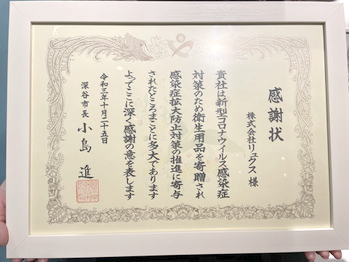 感謝状
株式会社リュウス 様
貴社は新型コロナウイルス感染症
対策のため衛生用品を寄贈され
感染症拡大防止対策の推進に寄与
されたところまことに多大であります
よってここに深く感謝の意を表します
令和三年十月二十五日
深谷市長 小島 進